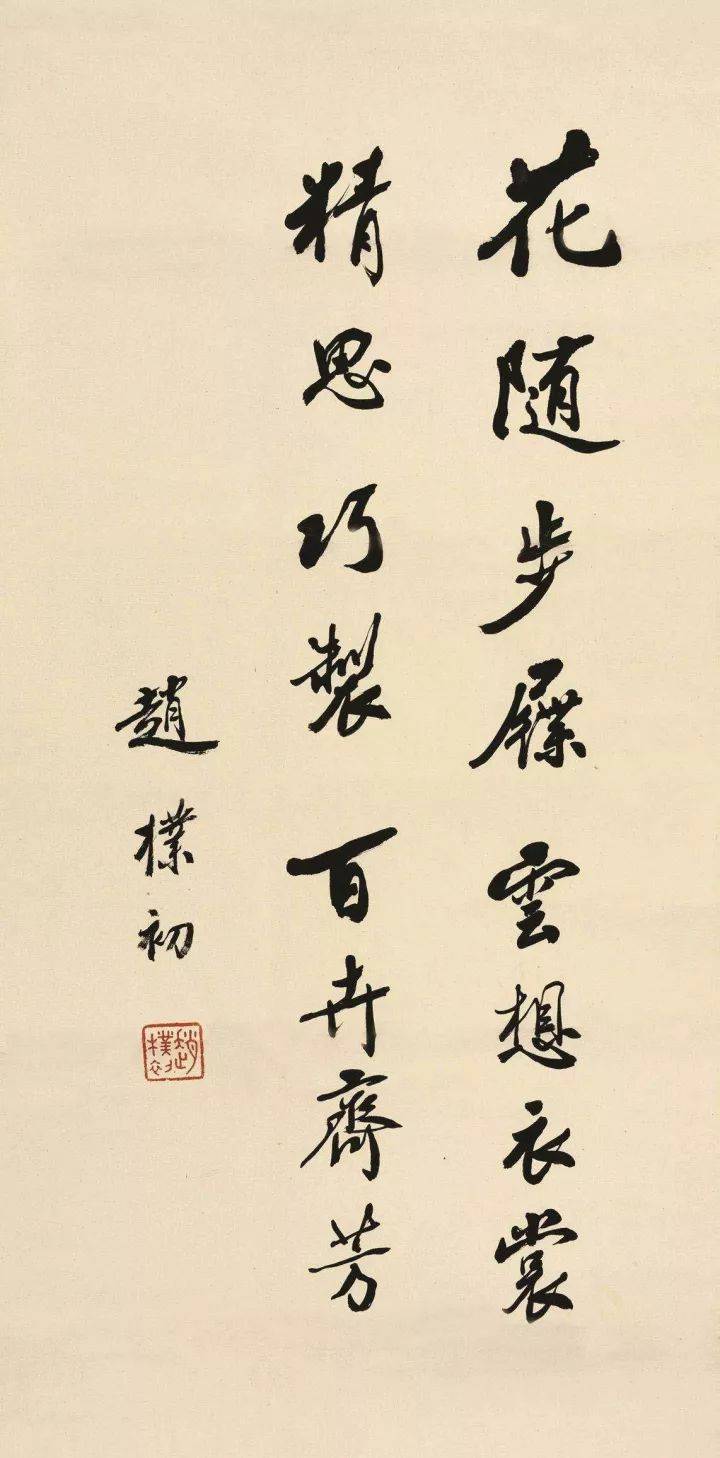 花随步屧雲想衣裳
精思巧製百卉齊芳
趙樸初
趙樸初